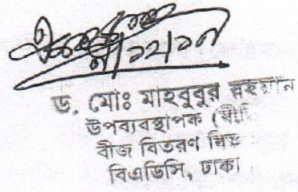 ড. মোঃ মাহবুবুর রহমান
উপব্যবস্থাপক
বীজ বিতরণ
বিএডিসি, ঢাকা